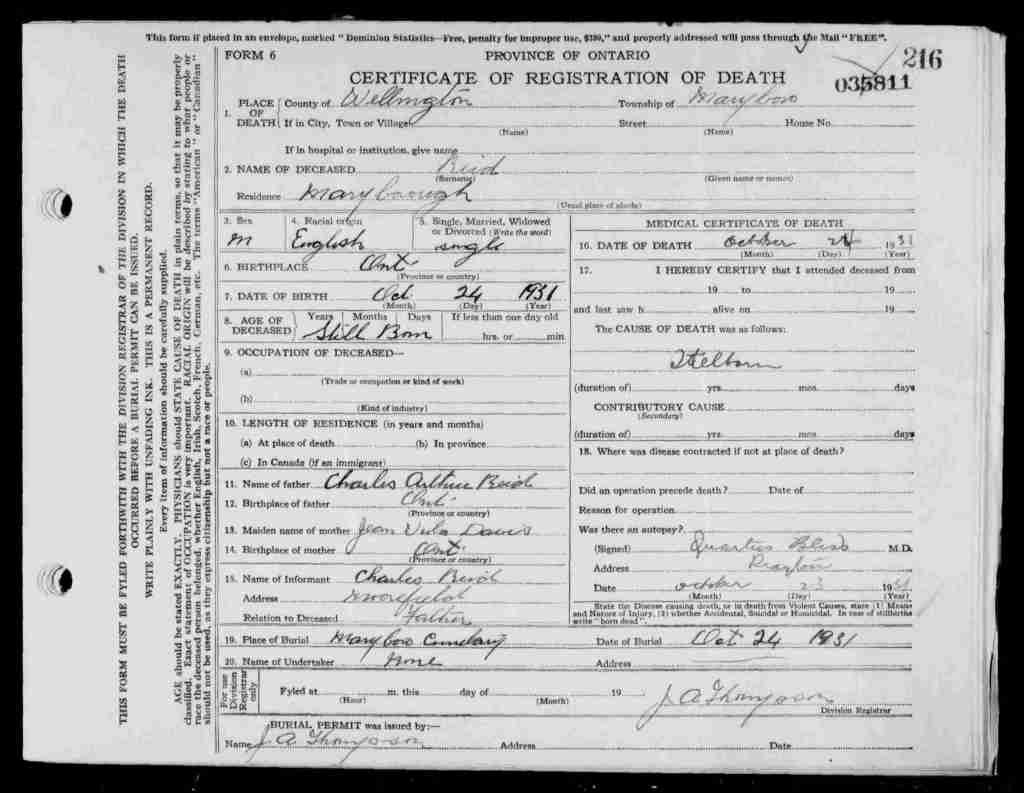 This form if placed in an envelope, marked "Dominion Statistics—Free, penalty for improper use, $300," and properly addressed will pass through the Mail "FREE".
FORM 6 PROVINCE OF ONTARIO 216
CERTIFICATE OF REGISTRATION OF DEATH 035811
1. PLACE OF DEATH County of Wellington Township of Maryboro
If in City, Town or Village Street House No.
(Name) (Name)
If in hospital or institution, give name
2. NAME OF DECEASED Reid
(Surname) (Given name or names)
Residence Maryborough
(Usual place of abode)
3. Sex 4. Racial origin 5. Single, Married, Widowed or Divorced (Write the word)
M English single
6. BIRTHPLACE Ont
(Province or country)
7. DATE OF BIRTH Oct 24 1931
(Month) (Day) (Year)
8. AGE OF DECEASED Years Months Days If less than one day old
Still Born hrs. or min
9. OCCUPATION OF DECEASED—
(a)
(Trade or occupation or kind of work)
(b)
(Kind of industry)
10. LENGTH OF RESIDENCE (in years and months)
(a) At place of death (b) In province
(c) In Canada (if an immigrant)
11. Name of father Charles Arthur Reid
12. Birthplace of father Ont
(Province or country)
13. Maiden name of mother Jean Davis
14. Birthplace of mother Ont
(Province or country)
15. Name of Informant Charles Reid
Address Moorefield
Relation to Deceased Father
MEDICAL CERTIFICATE OF DEATH
16. DATE OF DEATH October 24 1931
(Month) (Day) (Year)
17. I HEREBY CERTIFY that I attended deceased from
19 to 19
and last saw h alive on 19
The CAUSE OF DEATH was as follows:
Stilborn
(duration of) yrs. mos. days
CONTRIBUTORY CAUSE
(Secondary)
(duration of) yrs. mos. days
18. Where was disease contracted if not at place of death?
Did an operation precede death? Date of
Reason for operation
Was there an autopsy?
(Signed) Quartus Bliss M.D.
Address Drayton
Date October 23 1931
(Month) (Day) (Year)
State the Disease causing death, or in death from Violent Causes, state (1) Means
and Nature of Injury, (2) whether Accidental, Suicidal or Homicidal. In case of stillbirths
write "born dead".
19. Place of Burial Maryboro Cemetary Date of Burial Oct 24 1931
20. Name of Undertaker None Address
For use Division Registrar only
Fyled at m. this day of 19 J A Thompson
(Hour) (Month) Division Registrar
BURIAL PERMIT was issued by:—
Name J A Thompson Address Date
THIS FORM MUST BE FYLED FORTHWITH WITH THE DIVISION REGISTRAR OF THE DIVISION IN WHICH THE DEATH
OCCURRED BEFORE A BURIAL PERMIT CAN BE ISSUED.
WRITE PLAINLY WITH UNFADING INK. THIS IS A PERMANENT RECORD.
Every item of information should be carefully supplied.
AGE should be stated EXACTLY. PHYSICIANS should STATE CAUSE OF DEATH in plain terms, so that it may be properly
classified. Exact statement of OCCUPATION is very important. RACIAL ORIGIN will be described by stating to what people or
race the deceased person belonged, whether English, Irish, Scotch, French, German, etc. The terms "American" or "Canadian"
should not be used, as they express citizenship but not a race or people.